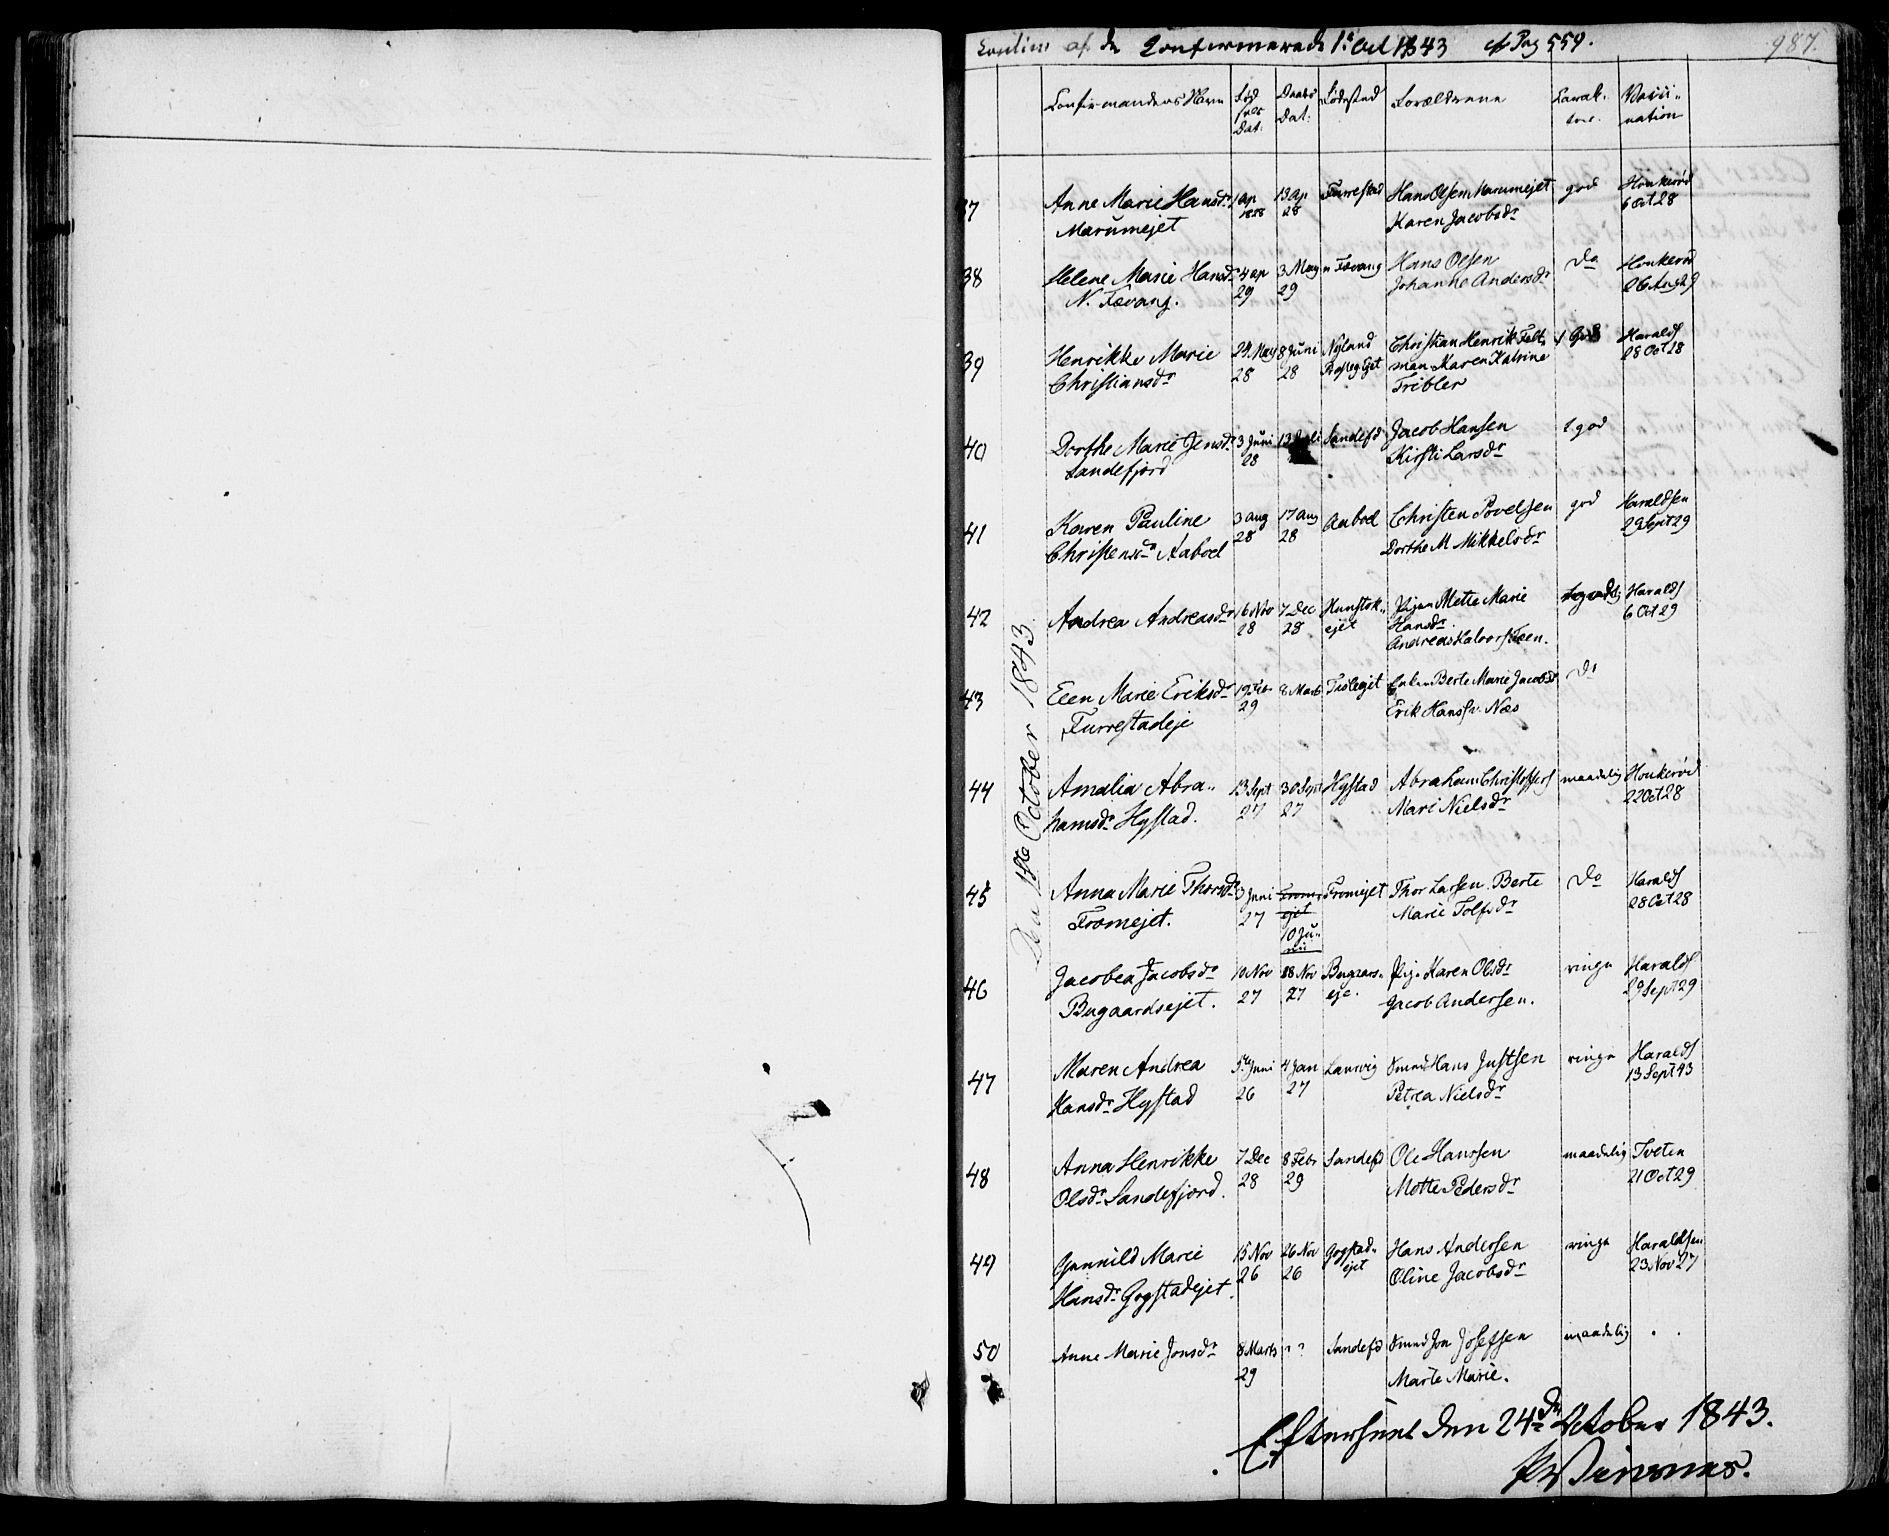 af de Confirmerede 1ste Oct 1843 cfr Pag 559.
987.
Confirmandens Navn
Fød
sels
Dat:
Daabs
Dat:
Fødested
Forældrene
Carak-
teer.
Vacci-
nation
Den 1ste October 1843.
37
Anne Marie Hansdr
Marumejet
1 Ap
1828
13 Ap
28
Furrestad
Hans Olsen Marumejet
Karen Jacobsdr
god
Honkerød
6 Oct 28
38
Helene Marie Hansdr
N. Fævang.
4 ap
29
3 May
29
n Fævang
Hans Olsen
Johanne Andersdr
Do
Honkerød
26 Aug 29
39
Henrikke Marie
Christiansdr
24 May
28
8 Juni
28
Nyland
Christian Henrik Felt-
man Karen Katrine
Tribler
Haralds
28 Oct 28
40
Dorthe Marie Jensdr
Sandefjord
3 Juni
28
13 Juli
Sandefd
Jacob Hansen
Kirsti Larsdr
t. god
41
Karen Pauline
Christensdr Aabol
3 Aug
28
17 Aug
28
Aabol
Christen Povelsen
Dorthe M Mikkelsdr
god
Haraldsen
29 Sept 29
42
Andrea Andreasdr
16 Nov
28
7 Dec
28
Hunstok-
ejet
Pigen Mette Marie
Hansdr.
Andreas Halvorsen.
Haralds
6 Oct 29
43
Elen Marie Eriksdr
Furrestadeje
19 Feb
29
8 Marts
Enken Berte Marie Jacobsd
Erik Hanss. Næs
Do
44
Amalia Abra-
hamsdr Hystad.
13 Sept
27
30 Sept
27
Hystad
Abraham Christoffers
Mari Nielsdr
maadelig
Honkerød
22 Oct 28
45
Anna Marie Thorsdr
Fromejet.
3 Juni
27
From-
ejet
10 Ju-
nii
Fromejet
Thor Larsen. Berte
Marie Tolfsdr
Do
Haralds
28 Oct 28
46
Jacobea Jacobsdr
Bugaardsejet.
10 Nov
27
28 Nov
27
Bugaars-
eje.
Pige Karen Olsdr
Jacob Andersen.
ringe
Haralds
29 Sept 29
47
Maren Andrea
Hansdr Hystad
5te Juni
26
4 Jan
27
Laurvig
Smed Hans Justsen
Petrea Nielsdr
ringe
Haralds
13 Sept 43
48
Anna Henrikke
Olsdr Sandefjord.
7 Dec
28
8 Febr
29
Sandefd
Ole Hanssen
Mette Pedersdr
maadelig
Tveten
21 Oct 29
49
Gunnild Marie
Hansdr Gogstadejet.
15 Nov
26
26 Nov
26
Gogstad-
ejet
Hans Andersen
Oline Jacobsdr
ringe
Haraldsen
23 Nov 27
50
Anne Marie Jonsdr
8 Marts
29
? ?
Sandefd
Smed Jon Josefsen
Marte Marie.
maadelig
Efterseet den 24de October 1843.